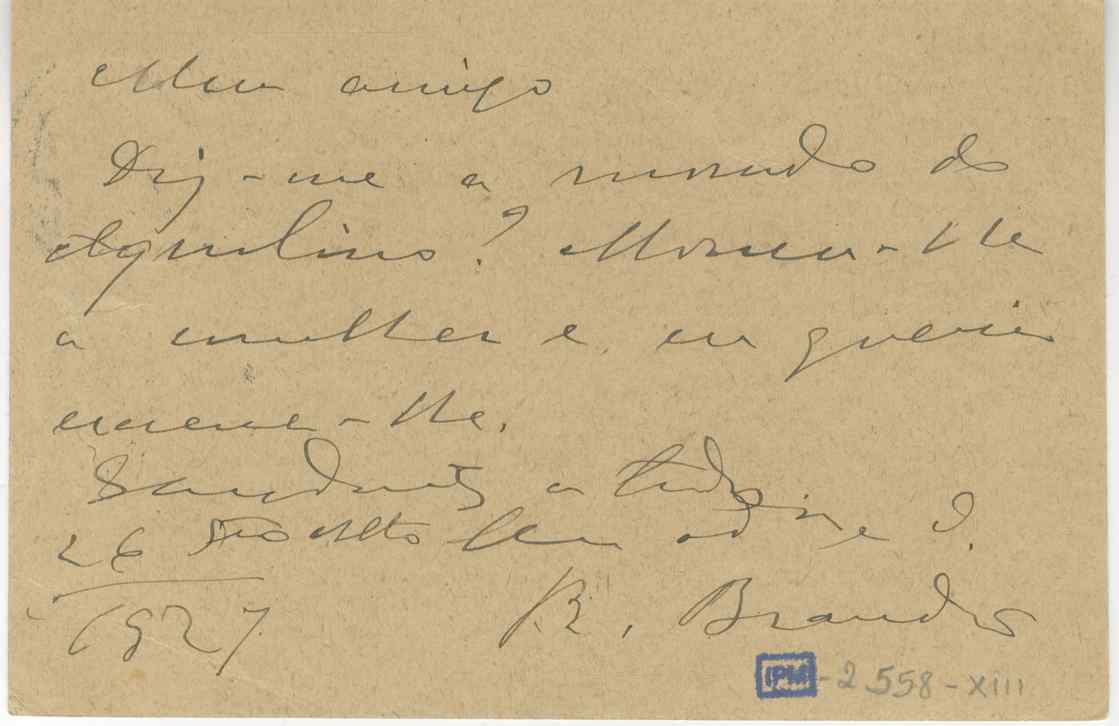 Meu amigo
Diz-me a morada do
Aquilino? Morreu-lhe
a mulher e eu queria
escrever-lhe.
Saudades a todos
26 do Alto Seu ad. e
1927 R. Brandão
IPM - 2558-XIII